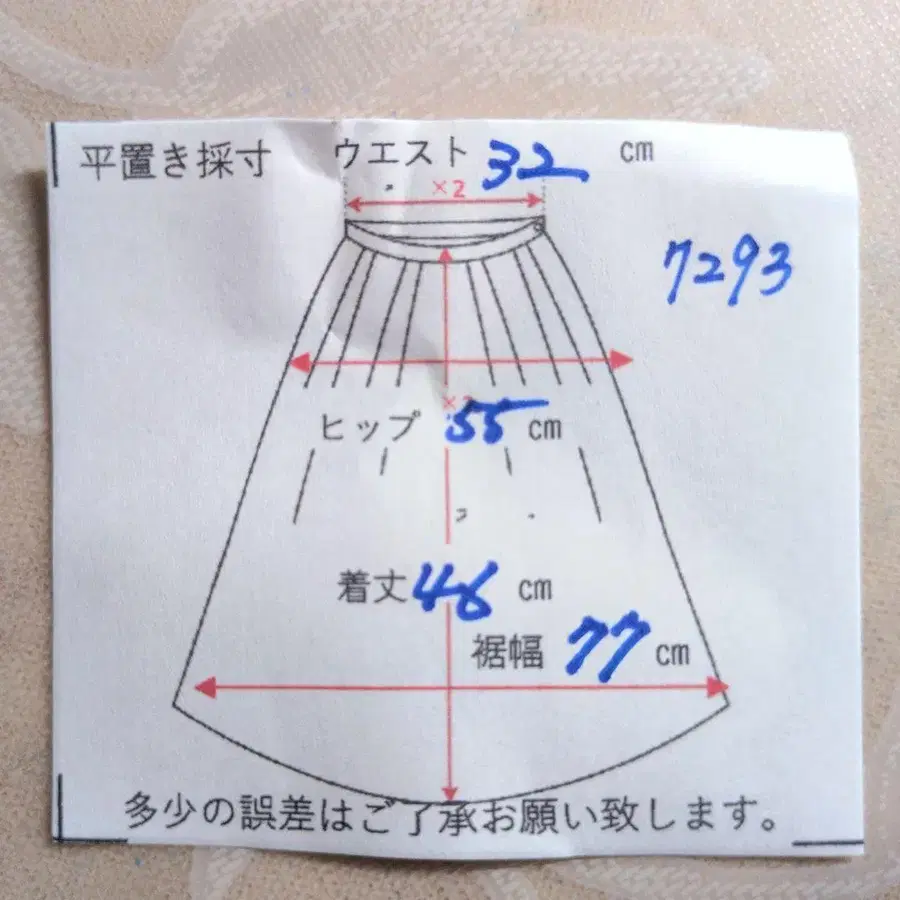 平置き採寸 ウエスト 32 cm
×2
7293
×2
ヒップ 55 cm
着丈 46 cm
裾幅 77 cm
多少の誤差はご了承お願い致します。